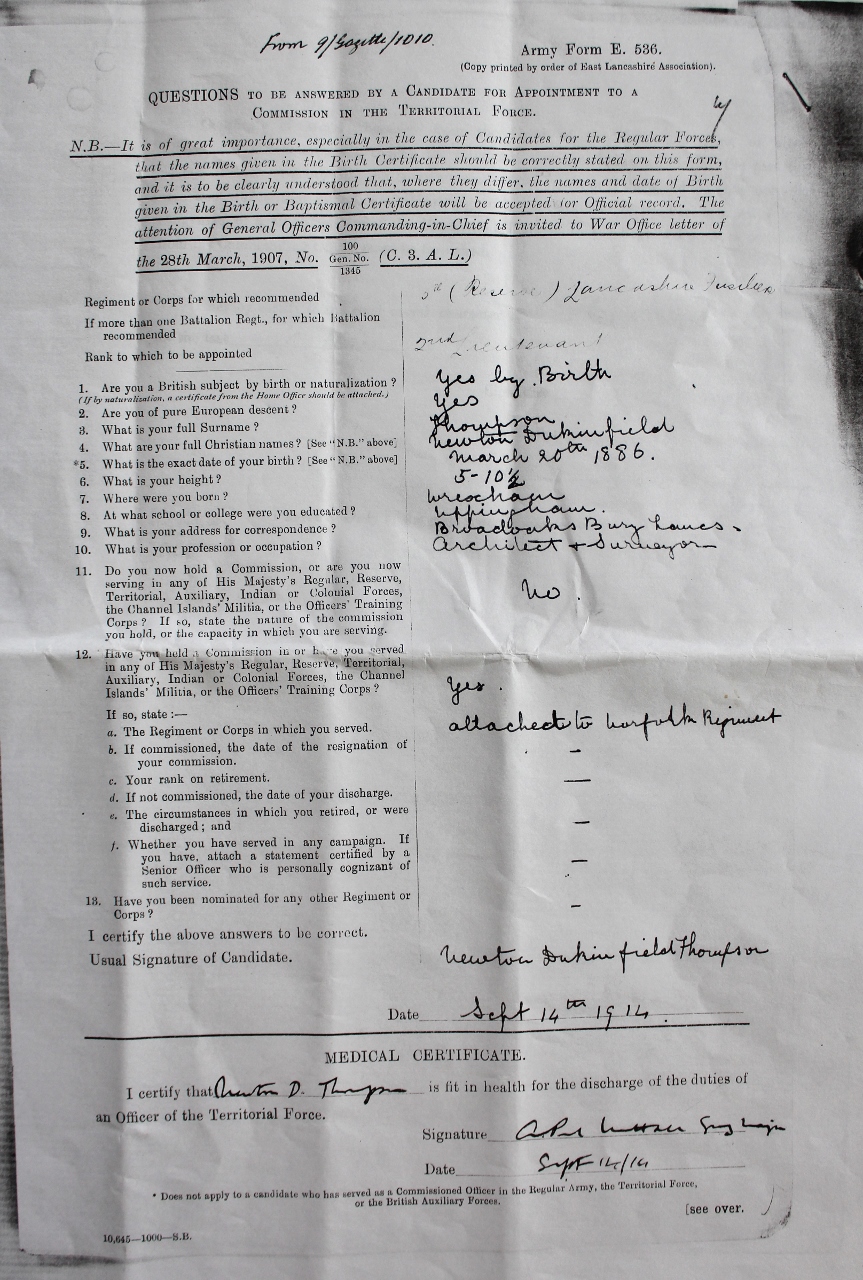 From 9/Gazette/1010.
Army Form E. 536.
(Copy printed by order of East Lancashire Association).
QUESTIONS TO BE ANSWERED BY A CANDIDATE FOR APPOINTMENT TO A
COMMISSION IN THE TERRITORIAL FORCE.
N.B.—It is of great importance, especially in the case of Candidates for the Regular Forces,
that the names given in the Birth Certificate should be correctly stated on this form,
and it is to be clearly understood that, where they differ, the names and date of Birth
given in the Birth or Baptismal Certificate will be accepted for Official record. The
attention of General Officers Commanding-in-Chief is invited to War Office letter of
the 28th March, 1907, No. 100/Gen. No./1345 (C. 3. A. L.)
Regiment or Corps for which recommended (Reserve) Lancashire Fusiliers
If more than one Battalion Regt., for which Battalion
recommended
Rank to which to be appointed 2nd Lieutenant
1. Are you a British subject by birth or naturalization? Yes by Birth
(If by naturalization, a certificate from the Home Office should be attached.)
2. Are you of pure European descent? Yes
3. What is your full Surname? Thompson
4. What are your full Christian names? [See "N.B." above] Newton Dukinfield
*5. What is the exact date of your birth? [See "N.B." above] March 20th 1886.
6. What is your height? 5-10½
7. Where were you born? Wrexham
8. At what school or college were you educated? Uppingham.
9. What is your address for correspondence? Broadoaks Bury Lancs.
10. What is your profession or occupation? Architect + Surveyor
11. Do you now hold a Commission, or are you now
serving in any of His Majesty's Regular, Reserve,
Territorial, Auxiliary, Indian or Colonial Forces,
the Channel Islands' Militia, or the Officers' Training
Corps? If so, state the nature of the commission
you hold, or the capacity in which you are serving.
No.
12. Have you held a Commission in or have you served
in any of His Majesty's Regular, Reserve, Territorial,
Auxiliary, Indian or Colonial Forces, the Channel
Islands' Militia, or the Officers' Training Corps?
Yes.
If so, state:—
a. The Regiment or Corps in which you served. attached to Norfolk Regiment
b. If commissioned, the date of the resignation of
your commission. –
c. Your rank on retirement. —
d. If not commissioned, the date of your discharge.
e. The circumstances in which you retired, or were
discharged; and –
f. Whether you have served in any campaign. If
you have, attach a statement certified by a
Senior Officer who is personally cognizant of
such service. –
13. Have you been nominated for any other Regiment or
Corps? –
I certify the above answers to be correct.
Usual Signature of Candidate. Newton Dukinfield Thompson
Date Sept 14th 1914.
MEDICAL CERTIFICATE.
I certify that Newton D. Thompson is fit in health for the discharge of the duties of
an Officer of the Territorial Force.
Signature
Date Sept 14/14
* Does not apply to a candidate who has served as a Commissioned Officer in the Regular Army, the Territorial Force,
or the British Auxiliary Forces.
[see over.
10,645—1000—S.B.